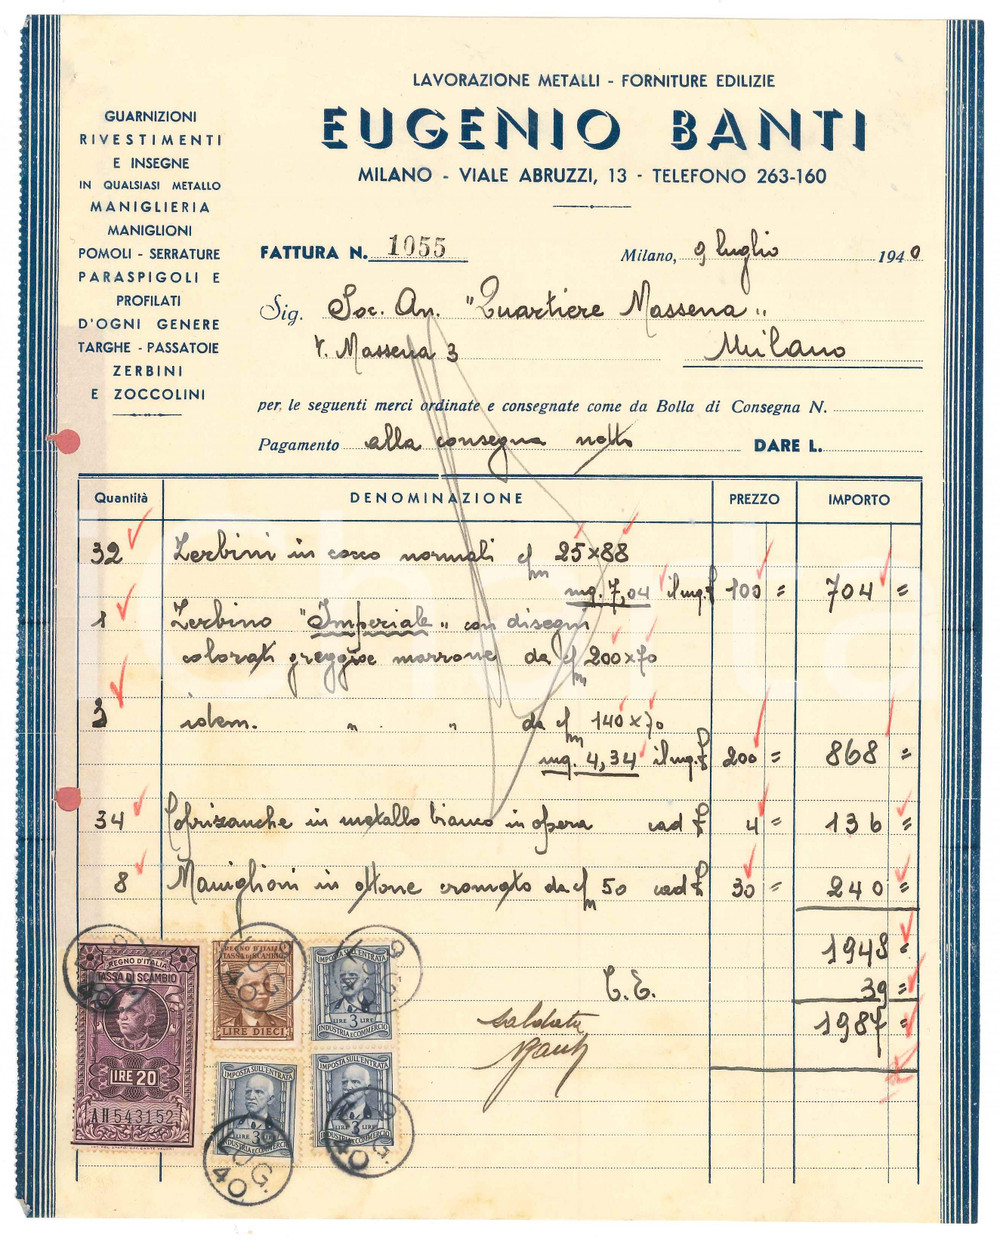 LAVORAZIONE METALLI - FORNITURE EDILIZIE
EUGENIO BANTI
MILANO - VIALE ABRUZZI, 13 - TELEFONO 263-160
GUARNIZIONI
RIVESTIMENTI
E INSEGNE
IN QUALSIASI METALLO
MANIGLIERIA
MANIGLIONI
POMOLI - SERRATURE
PARASPIGOLI E
PROFILATI
D'OGNI GENERE
TARGHE - PASSATOIE
ZERBINI
E ZOCCOLINI
FATTURA N. 1055
Milano, 9 luglio 1940
Sig. Soc. An. "Quartiere Massena"
V. Massena 3 Milano
per le seguenti merci ordinate e consegnate come da Bolla di Consegna N.
Pagamento alla consegna netto DARE L.
Quantità DENOMINAZIONE PREZZO IMPORTO
32 Zerbini in cocco normali c/m 25x88
mq. 7,04 il mq. £ 100 = 704 =
1 Zerbino "Imperiale" con disegni
colorati greggio e marrone da c/m 200x70
3 idem. " " da c/m 140x70
mq. 4,34 il mq. £ 200 = 868 =
34 Coprizanche in metallo bianco in opera cad £ 4 = 136 =
8 Maniglioni in ottone cromato da c/m 50 cad £ 30 = 240 =
1948 =
I.E. 39 =
1987 =
saldata
Banti
REGNO D'ITALIA
TASSA DI SCAMBIO
LIRE 20
AH 543152
REGNO D'ITALIA
TASSA DI SCAMBIO
LIRE DIECI
IMPOSTA SULL'ENTRATA
LIRE 3 LIRE
INDUSTRIA E COMMERCIO
IMPOSTA SULL'ENTRATA
LIRE 3
INDUSTRIA E COMMERCIO
IMPOSTA SULL'ENTRATA
LIRE 3 LIRE
INDUSTRIA E COMMERCIO
9 LUG. 40
9 LUG. 40
9 LUG. 40
LUG. 40
9 LUG. 40